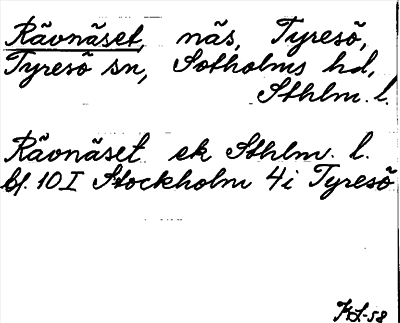 Rävnäset, näs, Tyresö,
Tyresö sn, Sotholms hd,
Sthlm. l.
Rävnäset ek Sthlm. l.
bl. 10 I Stockholm 4i Tyresö